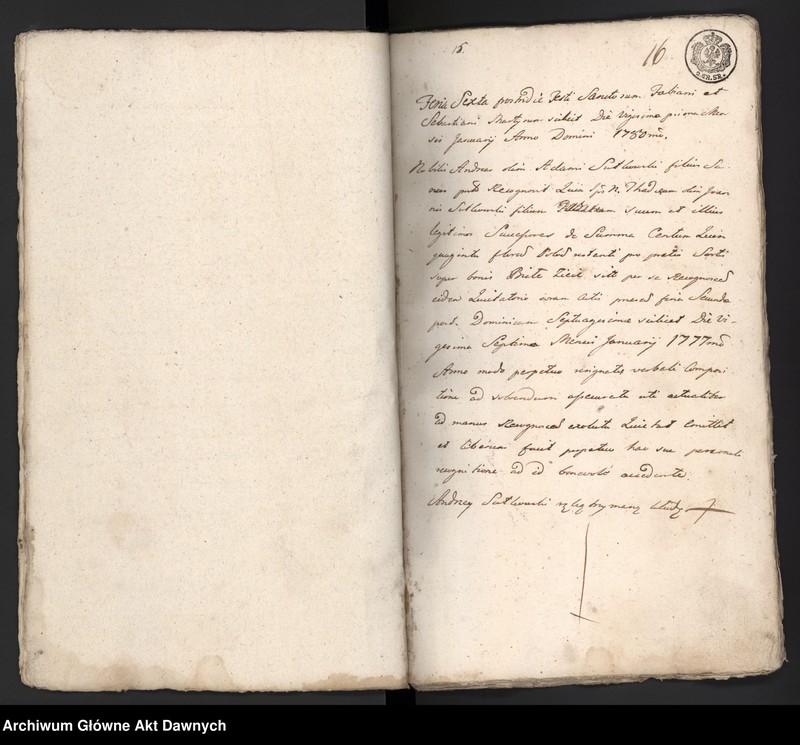 15.
16
Feria Sexta postridie Festi Sanctorum Fabiani et
Sebastiani Martyrum scilicet Die Vigesima prima Men-
sis Januarij Anno Domini 1780mo.
Nobilis Andreas olim Adami Sutkowski filius Sa-
nus Recognovit Quia N. Thadeum olim Joan-
nis Sutkowski filium suum et illius
legitimos Succesores de Summa Centum Quin
quaginta floren
super bonis per se Recognoscen
eidem Quietatorio coram Actis feria Secunda
post Dominicam Septuagesima scilicet Die Vi-
gesima Septima Mensis Januarij 1777mo
Anno modo perpetuo verbali Composi
tione ad solvendum uti actualiter
ad manus Recognoscen exoluta Quietat
et liberum facit perpetuo hac sua personali
recognitione ad id accedente.
Andrzey Sutkowski
Archiwum Główne Akt Dawnych